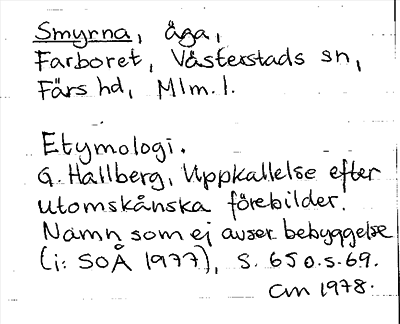 Smyrna, åga,
Farboret, Västerstads sn,
Färs hd, Mlm. l.
Etymologi.
G. Hallberg, Uppkallelse efter
utomskånska förebilder.
Namn som ej avser bebyggelse
(i: SOÅ 1977), s. 65 o. s. 69.
Cm 1978.